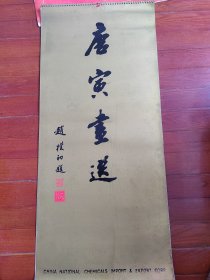 唐寅画选
趙樸初題
CHINA NATIONAL CHEMICALS IMPORT & EXPORT CORP.